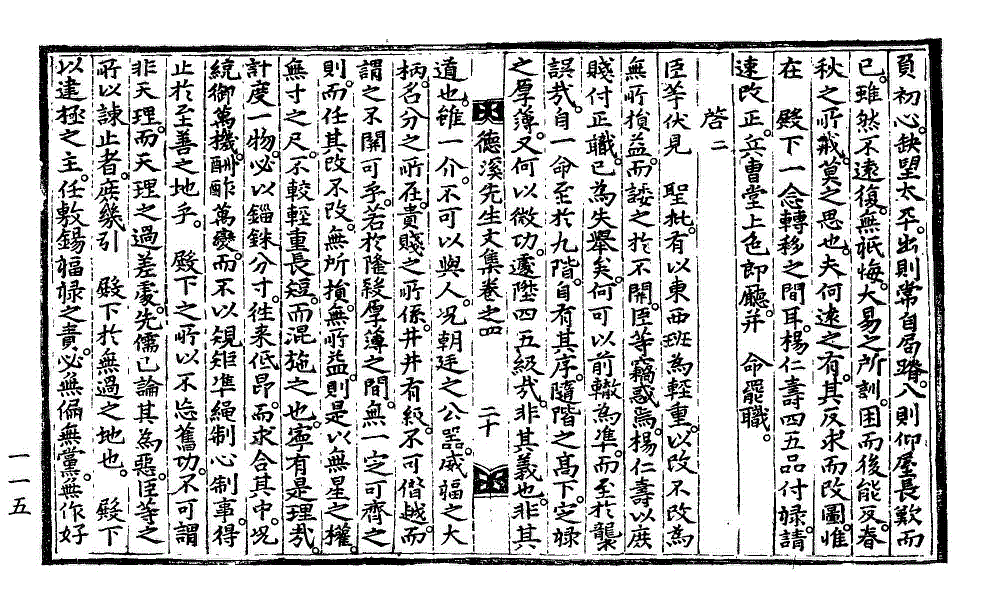 負初心缺望太平出則常自局蹐入則仰屋長歎而
已雖然不遠復無祗悔大易之所訓困而後能反春
秋之所戒莫之思也夫何遠之有其反求而改圖惟
在 殿下一念轉移之間耳楊仁壽四五品付祿請
速改正兵曹堂上色郞廳幷 命罷職
啓二
臣等伏見 聖批有以東西班爲輕重以改不改爲
無所損益而諉之於不關臣等竊惑焉楊仁壽以庶
賤付正職已爲失擧矣何可以前轍爲準而至於襲
誤哉自一命至於九階自有其序隨階之高下定祿
之厚薄又何以微功遽陞四五級哉非其義也非其
德溪先生文集卷之四 二十
道也雖一介不可以與人况朝廷之公器威福之大
柄名分之所在貴賤之所係井井有級不可僭越而
謂之不關可乎若於隆殺厚薄之間無一定可齊之
則而任其改不改無所損無所益則是以無星之權
無寸之尺不較輕重長短而混施之也寧有是理哉
計度一物必以錙銖分寸往來低昂而求合其中况
統御萬機酬酢萬變而不以規矩準繩制心制事得
止於至善之地乎 殿下之所以不忘舊功不可謂
非天理而天理之過差處先儒已論其爲惡臣等之
所以諫止者庶幾引 殿下於無過之地也 殿下
以建極之主任敷錫福祿之責必無偏無黨無作好
一一五